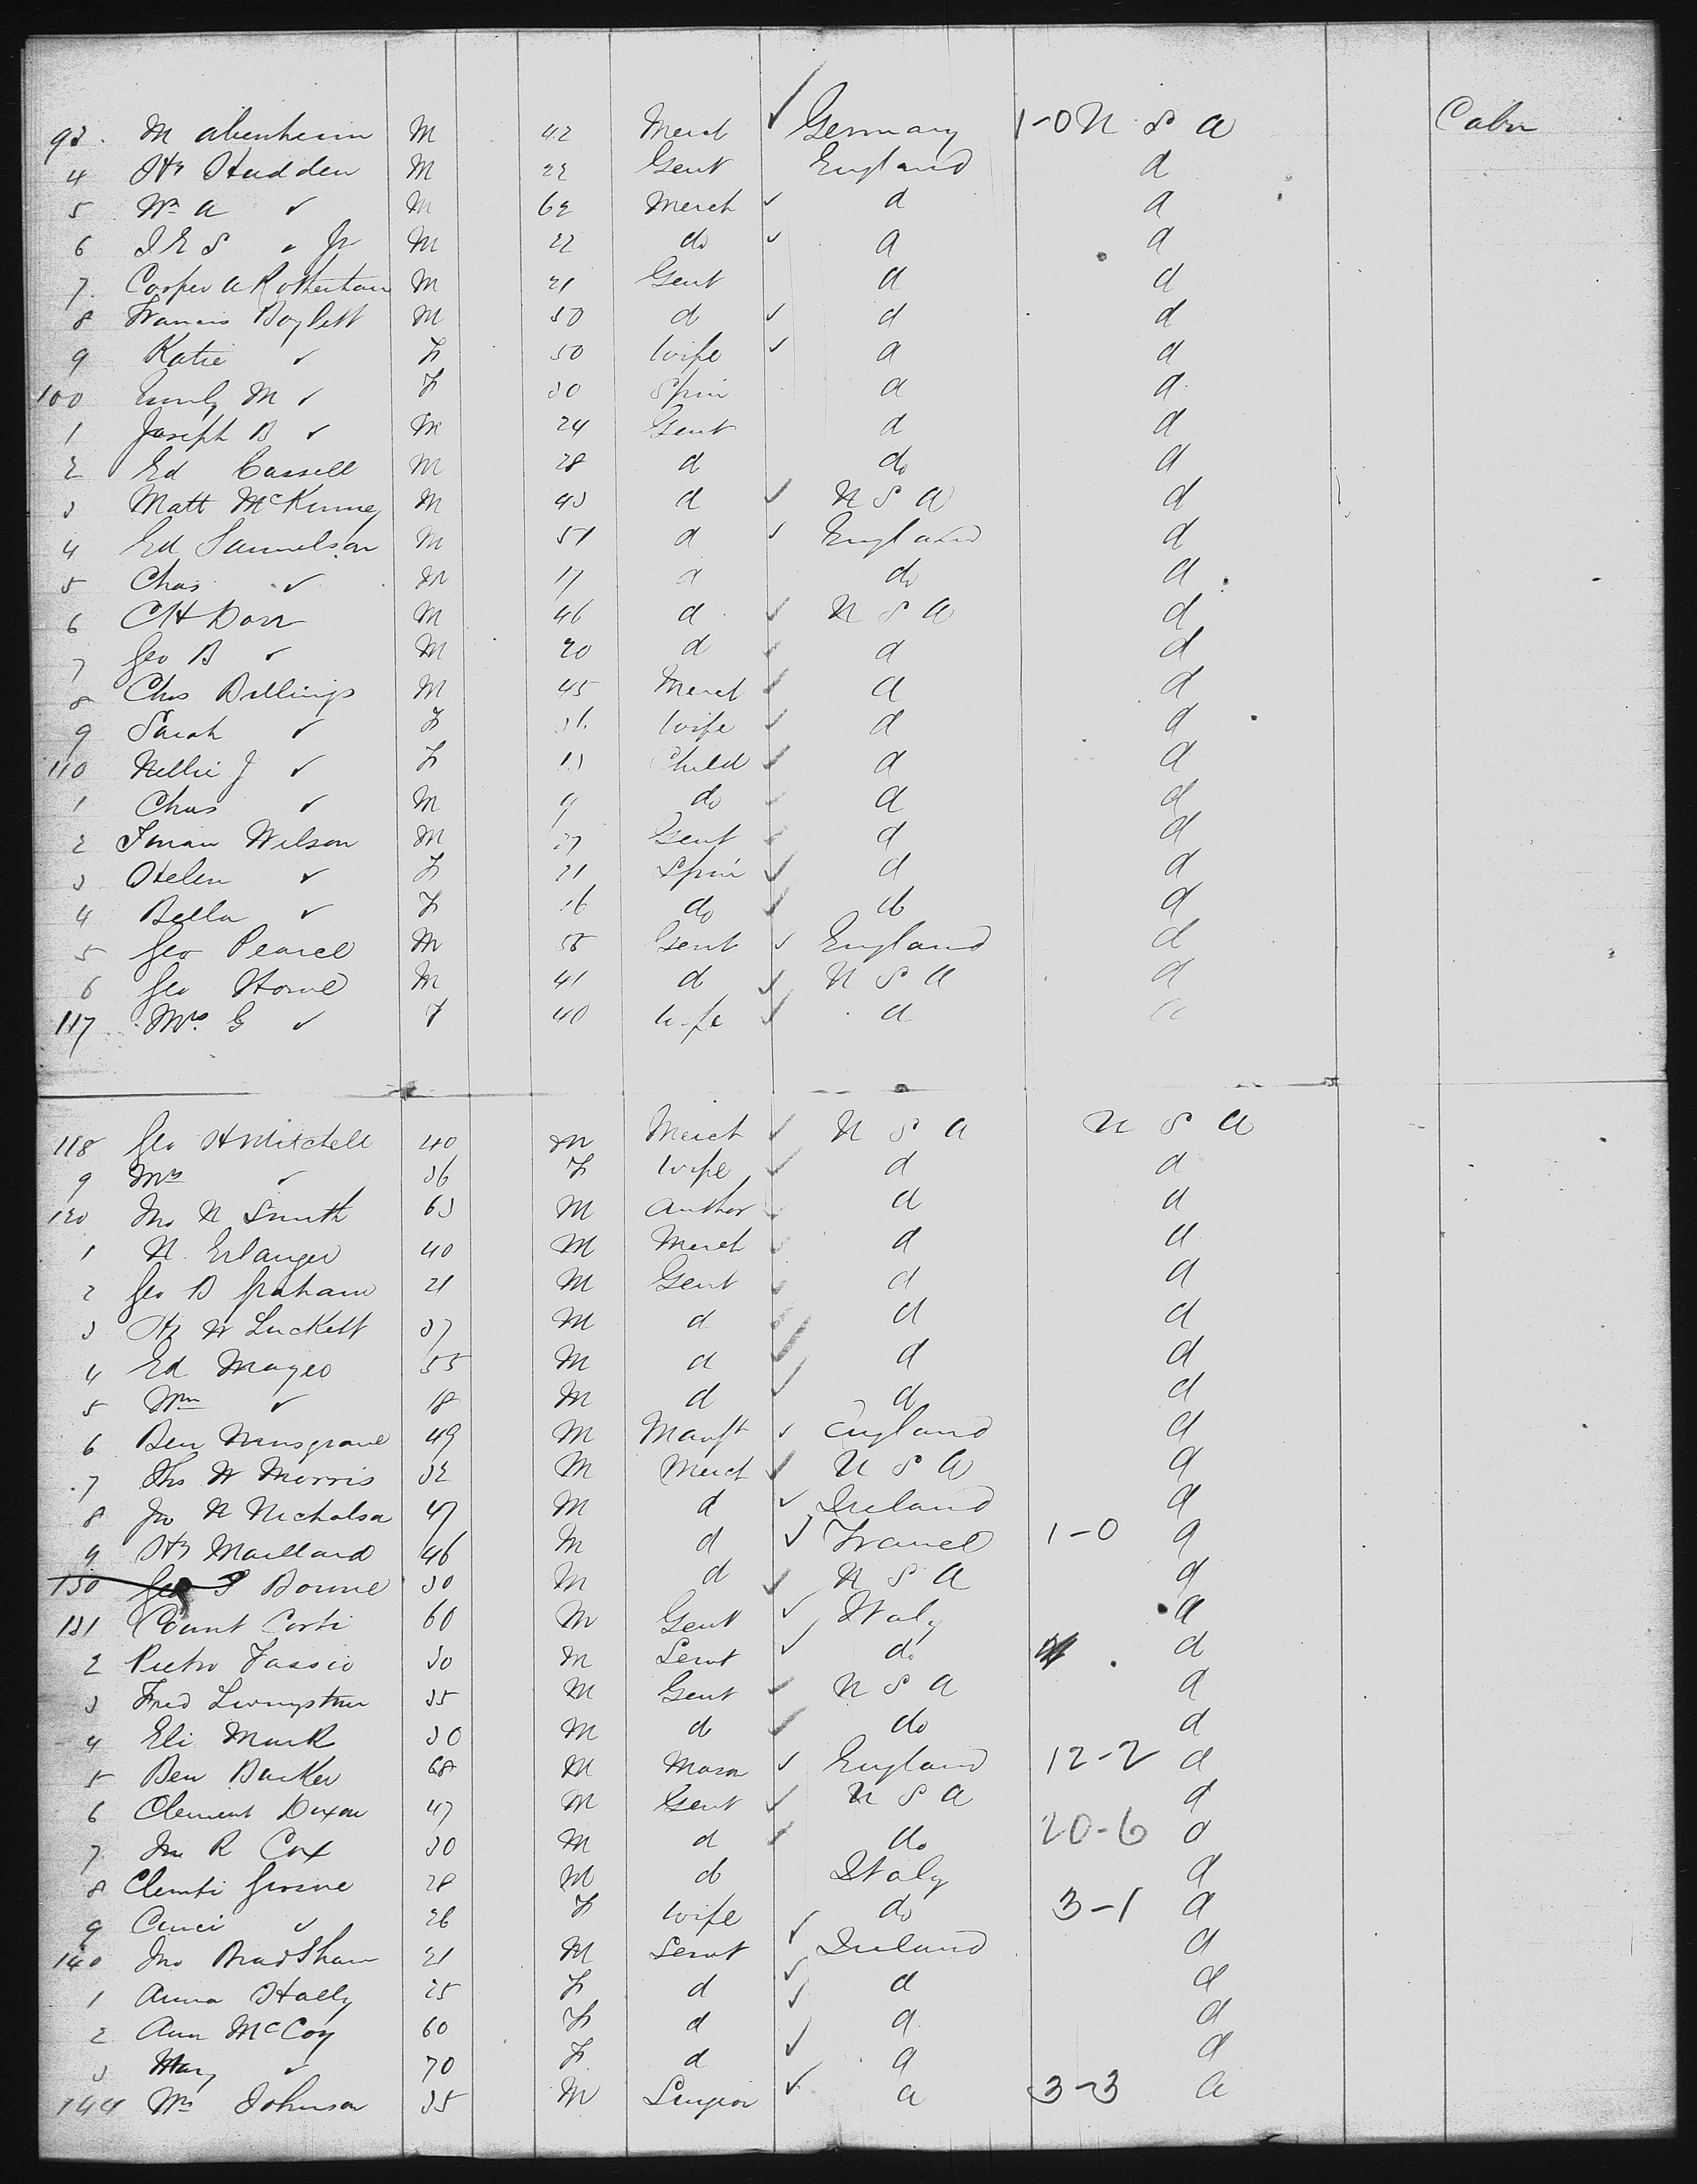 93. M Abenheim M 42 Merct ✓ Germany 1-0 U S A Cabn
4 Hy Hadden M 22 Gent England d
5 Wm A ✓ M 62 Merch ✓ d d
6 J E S " Jr M 22 do ✓ d d
7. Cooper A M 21 Gent d d
8 Francis Boylett M 50 d ✓ d d
9 Katie ✓ F 50 Wife ✓ d d
100 Emily M ✓ F 30 Spin d d
1 Joseph B ✓ M 24 Gent d d
2 Ed Cassell M 28 d do d
3 Matt McKinney M 43 d ✓ U S A d
4 Ed Samuelson M 51 d ✓ England d
5 Chas ✓ M 17 d do d
6 C H Dorr M 46 d ✓ U S A d
7 Geo B ✓ M 20 d ✓ d d
8 Chas Billings M 45 Merct ✓ d d
9 Sarah ✓ F 36 Wife ✓ d d
110 Nellie J ✓ F Child ✓ d d
1 Chas ✓ M 9 do ✓ d d
2 Wilson M Gent ✓ d d
3 Helen ✓ F 21 Spin ✓ d d
4 Bella ✓ F 16 do ✓ do d
5 Geo Pearce M 55 Gent ✓ England d
6 Geo Howe M 41 d ✓ U S A d
117 Mrs G ✓ F 40 Wife ✓ d d
118 Geo H Mitchell 40 M Merct ✓ U S A U S A
9 Mrs ✓ 36 F Wife ✓ d d
120 Jno N Smith 63 M Author ✓ d d
1 N. Erlanger 40 M Merct ✓ d d
2 Geo B Graham 21 M Gent ✓ d d
3 Hy W Luckett 37 M d ✓ d d
4 Ed Mayer 55 M d ✓ d d
5 Wm ✓ 18 M d ✓ do d
6 Ben Musgrave 49 M Manft ✓ England d
7 Thos W Morris 32 M Merct ✓ U S A d
8 Jno N Nicholson 47 M d ✓ Ireland d
9 Hy Maillard 46 M d ✓ France 1-0 d
130 Geo S Bowne 30 M d ✓ U S A d
131 Count Corti 60 M Gent ✓ Italy d
2 Pietro Fassio 30 M Servt ✓ do d
3 Fred Livingston 35 M Gent ✓ U S A d
4 Eli Mark 30 M do ✓ do d
5 Ben Barker 68 M Mason ✓ England 12-2 d
6 Clement Dixon 47 M Gent ✓ U S A d
7 Jno R Cox 30 M d ✓ do 20-6 d
8 Clemti 28 M do Italy d
9 ✓ 26 F Wife do 3-1 d
140 Jno BradShaw 21 M Servt ✓ Ireland d
1 Anna Hally 25 F d ✓ d d
2 Ann McCoy 60 F d ✓ d d
3 Mary ✓ 70 F d ✓ d d
144 Wm Johnson 35 M Surgeon ✓ d 3-3 d